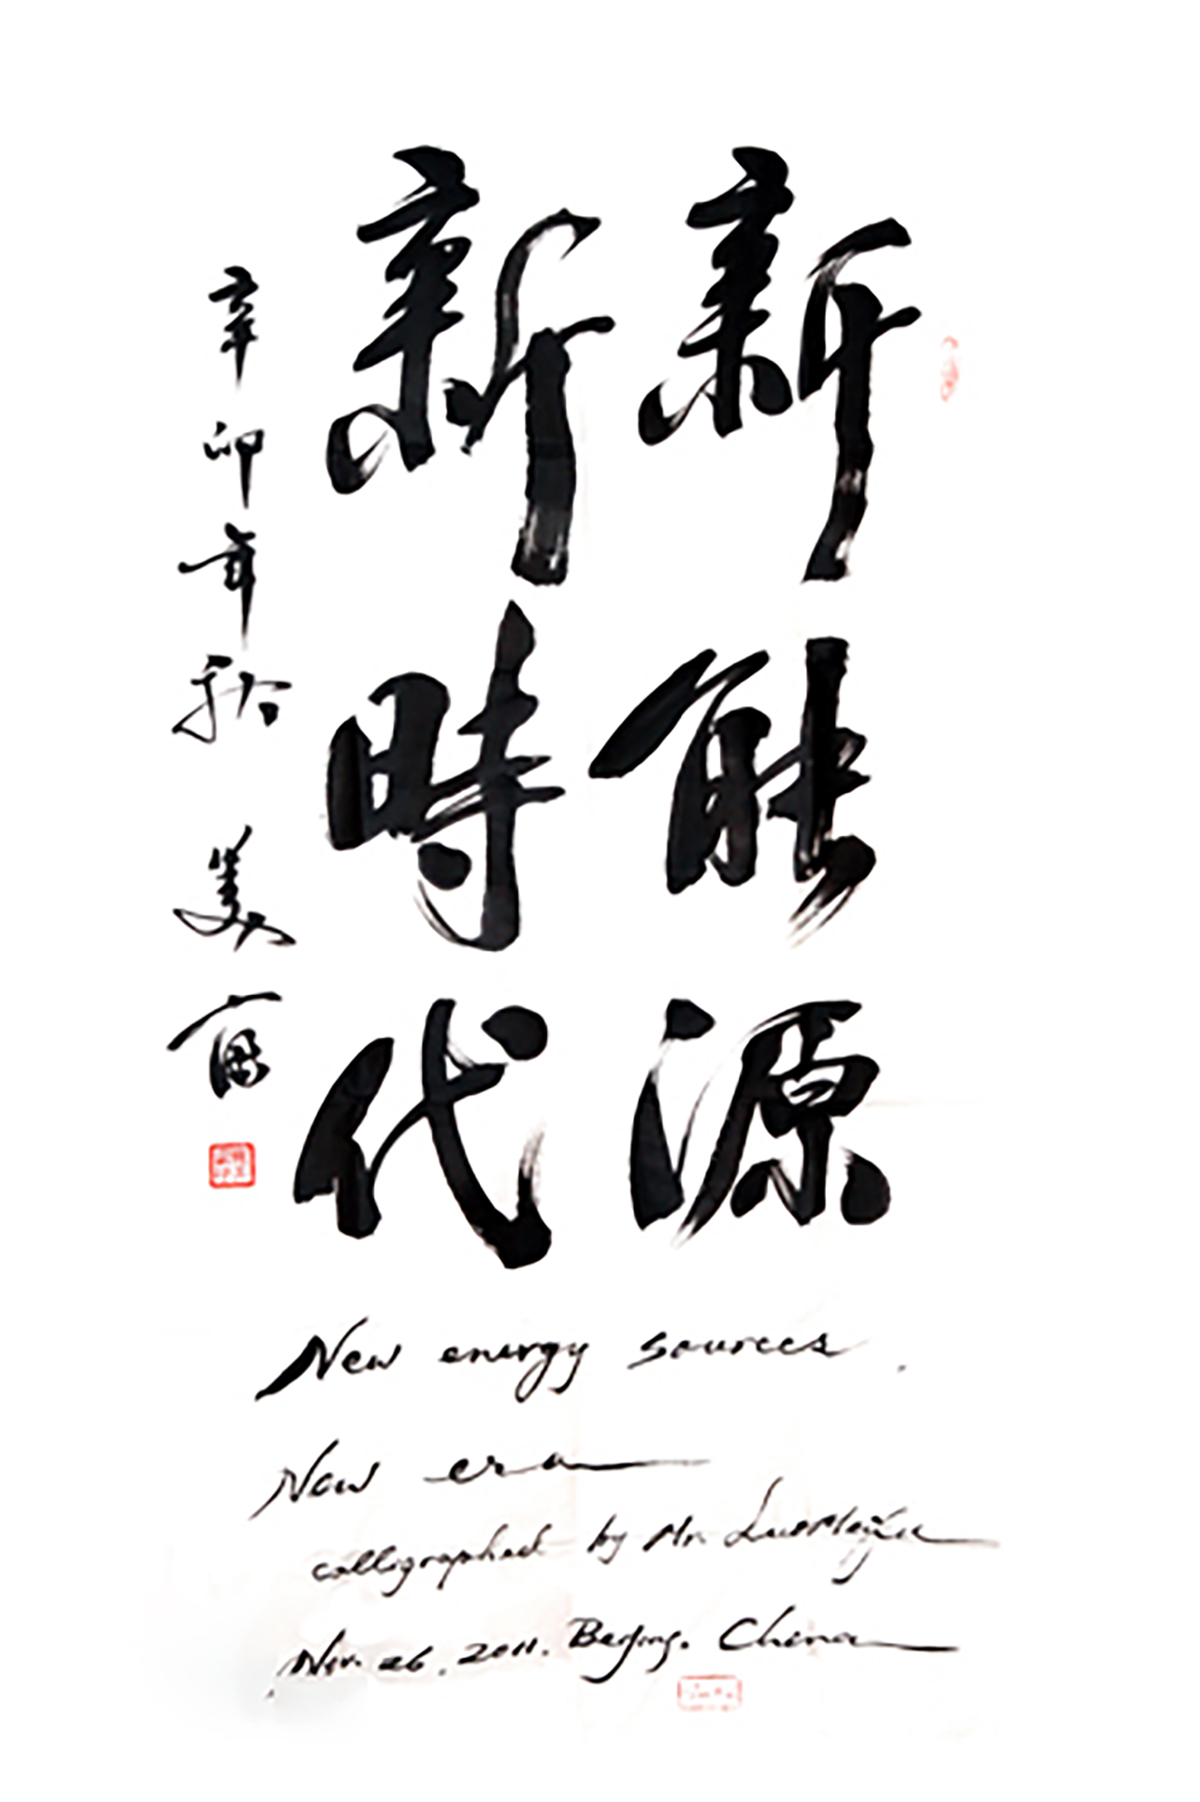 新能源
新時代
辛卯年於
美富
New energy sources.
New era
calligraphed by Mr. Luo Meifu
Nov. 26, 2011. Beijing. China